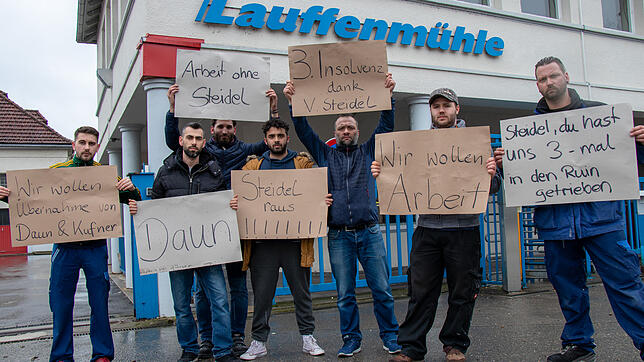 Lauffenmühle
Arbeit ohne
Steidel
3. Insolvenz
dank
V. Steidel
Wir wollen
Übernahme von
Daun & Kufner
Daun
Steidel
raus
!!!!!!!!!!
Wir wollen
Arbeit
Steidel, du hast
uns 3-mal
in den Ruin
getrieben